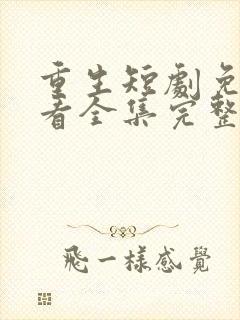 重生短劇免
看全集完整
飛一樣感覺